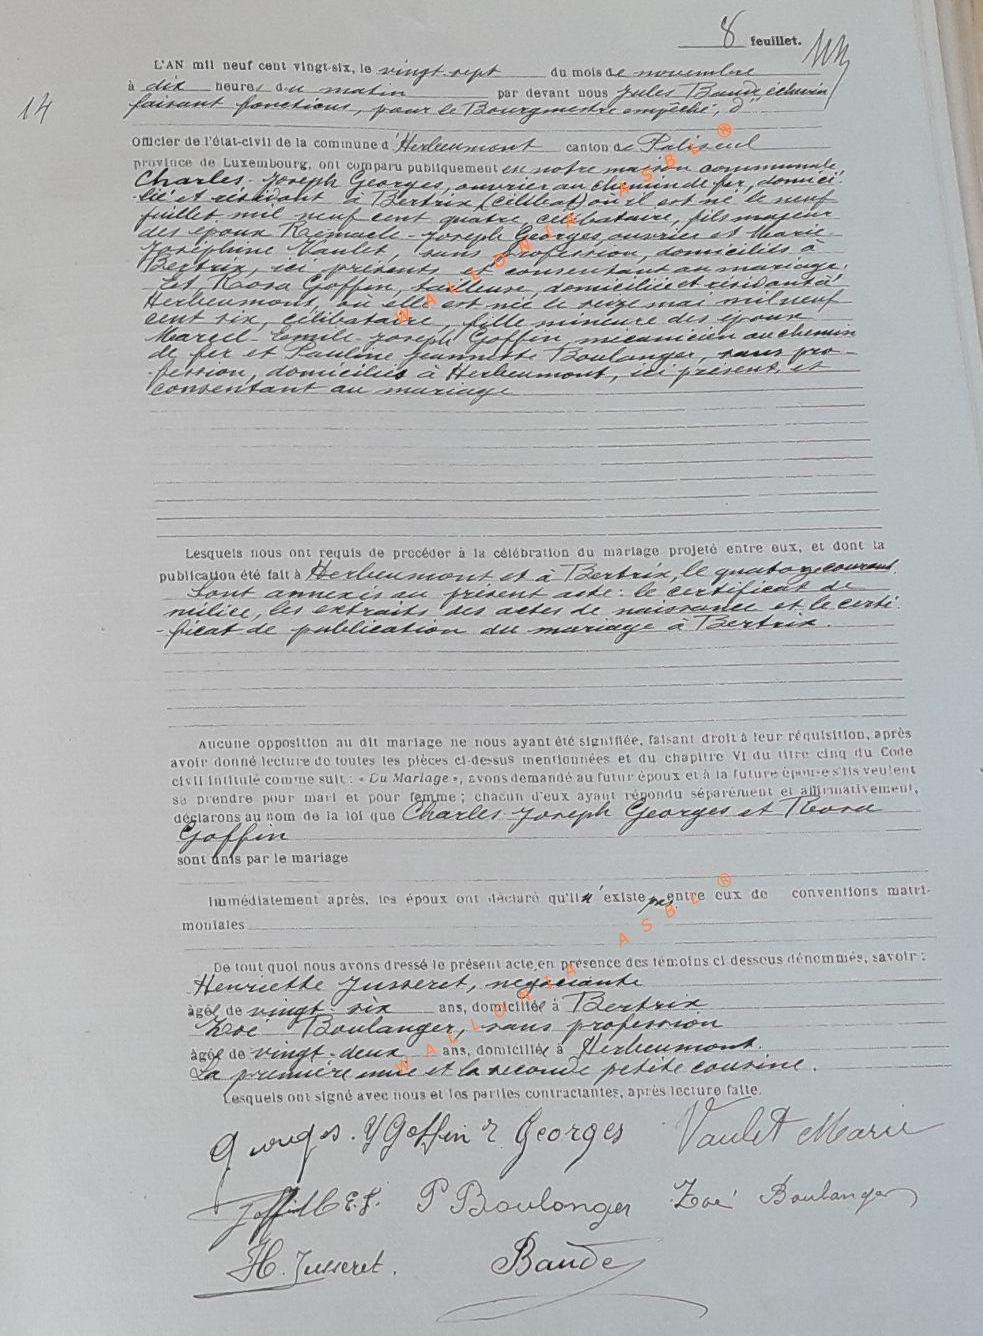 8 feuillet.
14
L'AN mil neuf cent vingt-six, le vingt-sept du mois de novembre
à dix heures du matin par devant nous Jules Baude échevin
faisant fonctions, pour le Bourgmestre empêché, d'
Officier de l'état-civil de la commune d'Herbeumont canton de Paliseul
province de Luxembourg, ont comparu publiquement en notre maison communale
Charles-Joseph Georges, ouvrier au chemin de fer, domici-
lié et résidant à Bertrix (célibat) où il est né le neuf
juillet mil neuf cent quatre, célibataire, fils majeur
des époux Remacle-Joseph Georges, ouvrier et Marie-
Joséphine Vaulet, sans profession, domiciliés à
Bertrix, ici présents et consentant au mariage,
Et, Rosa Goffin, tailleuse, domiciliée et résidant à
Herbeumont, où elle est née le seize mai mil neuf
cent six, célibataire, fille mineure des époux
Marcel-Emile-Joseph Goffin, mécanicien au chemin
de fer et Pauline Jeannette Boulanger, sans pro-
fession, domiciliés à Herbeumont, ici présent, et
consentant au mariage
Lesquels nous ont requis de procéder à la célébration du mariage projeté entre eux, et dont la
publication été fait à Herbeumont et à Bertrix, le quatorze courant.
Sont annexés au présent acte: le certificat de
milice, les extraits des actes de naissance et le certi-
ficat de publication du mariage à Bertrix.
Aucune opposition au dit mariage ne nous ayant été signifiée, faisant droit à leur réquisition, après
avoir donné lecture de toutes les pièces ci-dessus mentionnées et du chapitre VI du titre cinq du Code
civil intitulé comme suit : « Du Mariage », avons demandé au futur époux et à la future épouse s'ils veulent
se prendre pour mari et pour femme ; chacun d'eux ayant répondu séparément et affirmativement,
déclarons au nom de la loi que Charles-Joseph Georges et Rosa
Goffin
sont unis par le mariage
Immédiatement après, les époux ont déclaré qu'il n'existe pas entre eux de conventions matri-
moniales
De tout quoi nous avons dressé le présent acte, en présence des témoins ci dessous dénommés, savoir :
Henriette Jusseret, négociante
âgée de vingt six ans, domiciliée à Bertrix
Zoé Boulanger, sans profession
âgée de vingt-deux ans, domiciliée à Herbeumont.
La première amie et la seconde petite cousine.
Lesquels ont signé avec nous et les parties contractantes, après lecture faite.
Georges. J Goffin R Georges Vaulet Marie
Goffin M E.J. P Boulanger Zoé Boulanger
H. Jusseret. Baude
WALLONIA ASBL ®
WALLONIA ASBL ®